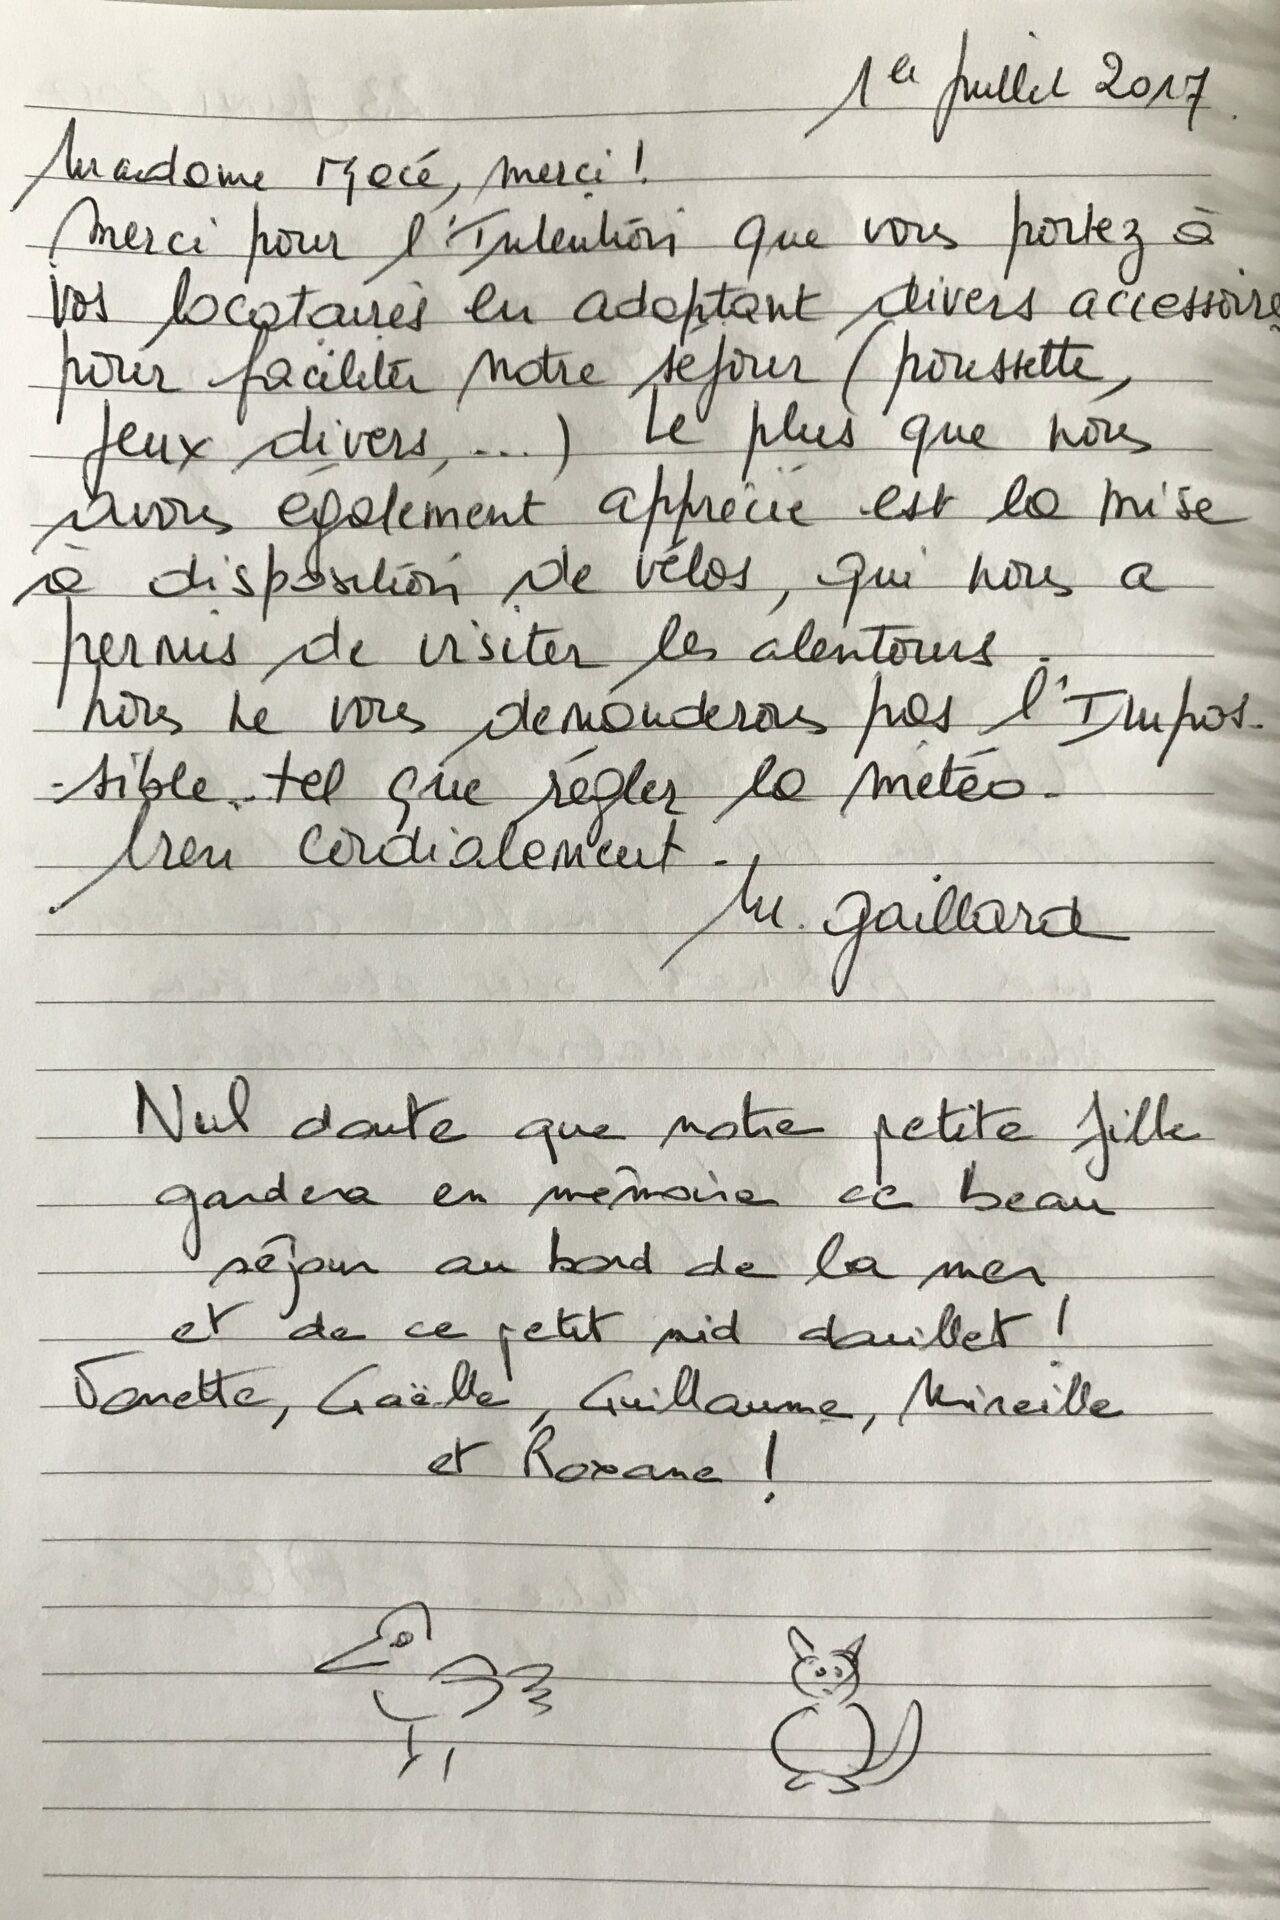 1er juillet 2017.
Madame Macé, merci !
Merci pour l'Intention que vous portez à
vos locataires en adoptant divers accessoires
pour faciliter notre séjour (poussette,
jeux divers, ...) Le plus que nous
avons également apprécié est la mise
à disposition de vélos, qui nous a
permis de visiter les alentours.
Nous ne vous demanderons pas l'Impos-
-sible.. tel que régler la météo.
bien cordialement.
M. Gaillard
Nul doute que notre petite fille
gardera en mémoire ce beau
séjour au bord de la mer
et de ce petit nid douillet !
Gaëlle, Guillaume, Mireille
et Roxane !